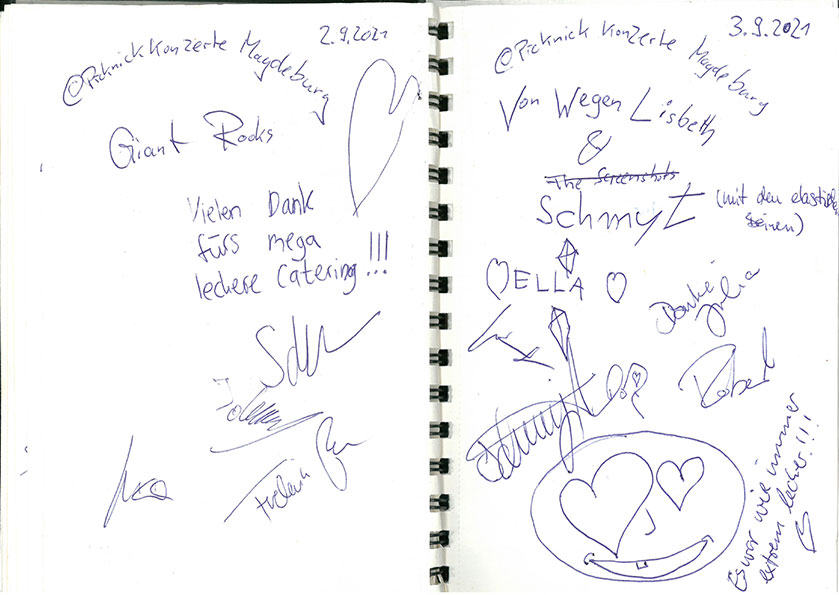 2.9.2021
@Picknick Konzerte Magdeburg
Giant Rooks
Vielen Dank
fürs mega
leckere Catering!!!
3.9.2021
@Picknick Konzerte Magdeburg
Von Wegen Lisbeth
&
The Screenshots
Schmyt (mit den elastischen
Beinen)
ELLA
Danke
Julia
Robert
Schmyt
Es war wie immer
extrem lecker!!!